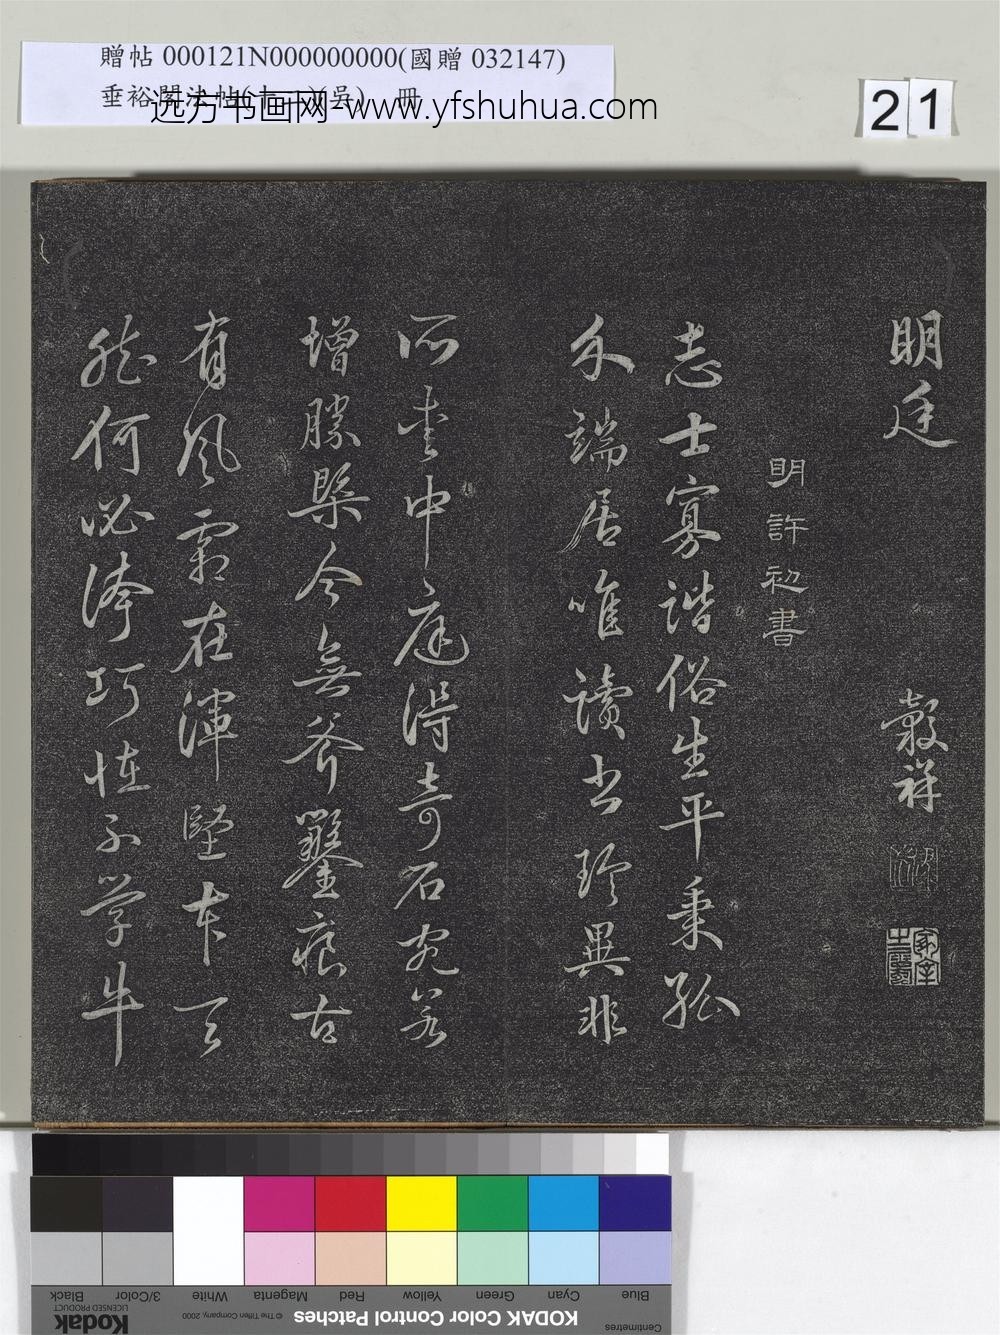 贈帖 000121N000000000(國贈 032147)
垂裕閣法帖(十一)(吳) 冊
远方书画网-www.yfshuhua.com
21
明廷
穀祥
明許初書
志士寡諧俗生平秉孤
永端居唯讀書珍異非
所重中庭得奇石宛若
增勝概今無斧鑿痕古
有風霜在渾堅本天
然何必誇巧怪不學牛
Black
3/Color
White
Magenta
Red
Yellow
Green
Cyan
Blue
Kodak
LICENSED PRODUCT
© The Tiffen Company, 2000
KODAK Color Control Patches
Centimetres